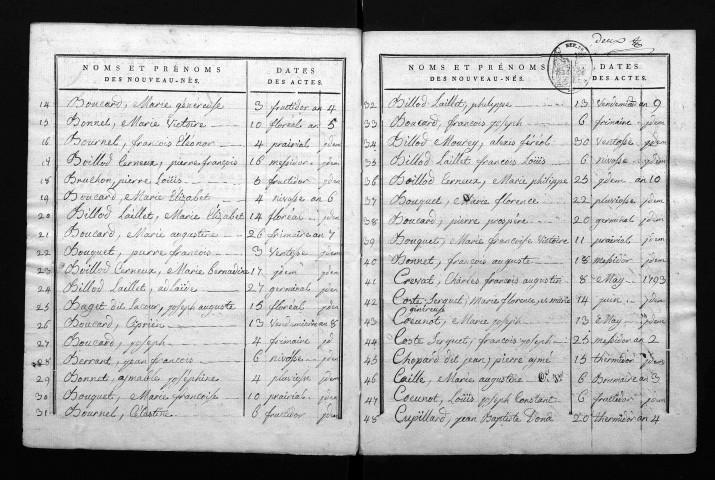 NOMS ET PRÉNOMS
DES NOUVEAU-NÉS.
DATES
DES ACTES.
14 Boucard, Marie généreuse 3 fructidor an 4
15 Bonnel, Marie Victoire 10 floréal an 5
16 Bournel, françois Eléonor 4 prairial jdem
17 Boillod Cerneux, pierre françois 16 messidor jdem
18 Bruchon, pierre Loüis 5 fructidor jdem
19 Boucard, Marie Elizabet 4 nivose an 6
20 Billod Laillet, Marie Elizabet 14 floréal jdem
21 Boucard, Marie augustine 26 frimaire an 7
22 Bouquet, pierre françois 3 Ventose jdem
23 Boillod Cerneux, Marie Bernadine 17 jdem jdem
24 Billod Laillet, adelaïde 27 germinal jdem
25 Baget dit Lacour, joseph auguste 15 floréal jdem
26 Boucard, Ciprien 13 Vendemiaire an 8
27 Boucard, joseph 4 frimaire jd
28 Berrant, jean françois 6 nivose jdem
29 Bonnet, aimable joséphine 4 pluviose jdem
30 Bouquet, Marie françoise 10 prairial jdem
31 Bournel, Célestine 6 fructidor jdem
deux
NOMS ET PRÉNOMS
DES NOUVEAU-NÉS.
DATES
DES ACTES.
32 Billod Laillet, philippe 13 Vendemiaire an 9
33 Boucard, françois joseph 6 frimaire jdem
34 Billod Mourey, alexis féréol 30 Ventose jdem
35 Billod Laillet françois Loüis 6 nivose jdem
36 Boillod Cerneux, Marie philippe 25 jdem an 10
37 Bouquet, Marie florence 22 pluviose jdem
38 Boucard, pierre prospere 20 germinal jdem
39 Bouquet, Marie françoise Victoire 11 prairial jdem
40 Bonnet, françois auguste 18 messidor jdem
41 Crevat, Charles françois augustin 8 May 1793
42 Coste Serguet, Marie florence, et marie généreuse 14 juin jdem
43 Coeunot, Marie joseph 13 May jdem
44 Coste Serguet, françois joseph 25 messidor an 2
45 Chopard dit jean, pierre aimé 15 thermidor jdem
46 Caille, Marie augustine 6 Brumaire an 3
47 Coeunot, Loüis joseph Constant 6 fructidor jdem
48 Cupillard, jean Baptiste 20 thermidor an 4